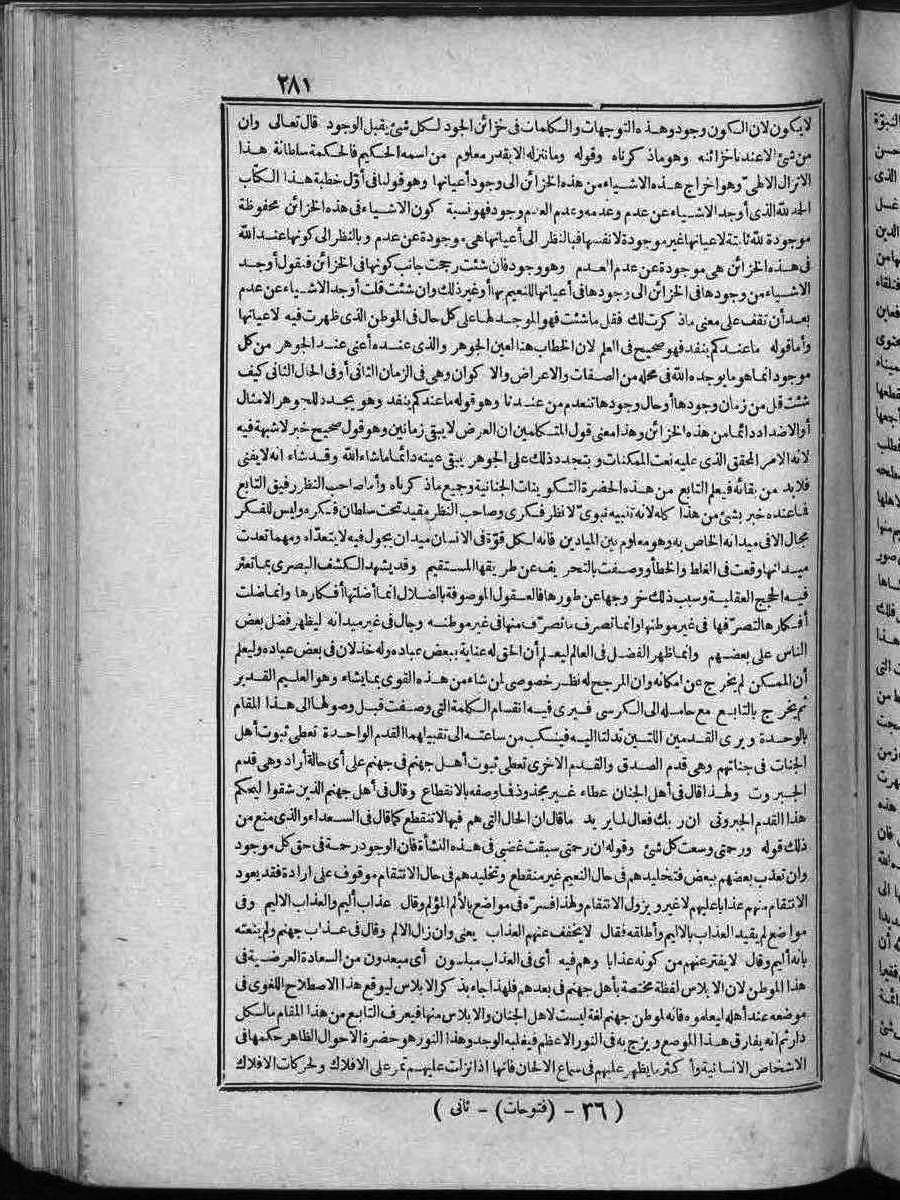 ٢٨١
لا يكون لان الكون وجود وهذه التوجهات والكلمات فى خزائن الجود لكل شئ يقبل الوجود قال تعالى وان
من شئ الا عندنا خزائنه وهو ماذ كرناه وقوله وماننزله الا بقدر معلوم من اسمه الحكيم فالحكمة سلطانة هذا
الانزال الالهىّ وهو اخراج هذه الاشياء من هذه الخزائن الى وجود أعيانها وهو قولنا فى أوّل خطبة هذا الكتاب
الحمد لله الذى أوجد الاشياء عن عدم وعدمه وعدم العدم وجود فهو نسبة كون الاشياء فى هذه الخزائن محفوظة
موجودة لله ثابتة لاعيانها غير موجودة لانفسها فبالنظر الى أعيانها هى موجودة عن عدم وبالنظر الى كونها عند الله
فى هذه الخزائن هى موجودة عن عدم العدم وهو وجود فان شئت رجحت جانب كونها فى الخزائن فنقول أوجد
الاشياء من وجودها فى الخزائن الى وجودها فى أعيانها للنعيم بها أو غير ذلك وان شئت قلت أوجد الاشياء عن عدم
بعد أن تقف على معنى ماذ كرت لك فقل ماشئت فهو الموجد لها على كل حال فى الموطن الذى ظهرت فيه لاعيانها
وأما قوله ما عندكم ينفد فهو صحيح فى العلم لان الخطاب هنا لعين الجوهر والذى عنده أعنى عند الجوهر من كل
موجود انما هو ما يوجده الله فى محله من الصفات والاعراض والا كوان وهى فى الزمان الثانى أو فى الحال الثانى كيف
شئت قل من زمان وجودها أو حال وجودها تنعدم من عندنا وهو قوله ما عندكم ينفد وهو يجدد للجوهر الامثال
أو الاضداد دائما من هذه الخزائن وهذا معنى قول المتكلمين ان العرض لا يبقى زمانين وهو قول صحيح خبر لا شبهة فيه
لانه الامر المحقق الذى عليه نعت الممكنات وبتجدد ذلك على الجوهر يبقى عينه دائما ما شاء الله وقد شاء انه لا يفنى
فلابد من بقائه فيعلم التابع من هذه الحضرة التكوينات الجنانية وجميع ماذ كرناه وأما صاحب النظر رفيق التابع
فما عنده خبر بشئ من هذا كله لانه تنبيه نبوىّ لا نظر فكرى وصاحب النظر مقيد تحت سلطان فكره وليس للفكر
مجال الا فى ميدانه الخاص به وهو معلوم بين الميادين فانه لكل قوّة فى الانسان ميدان يجول فيه لا يتعداه ومهما تعدت
ميدانها وقعت فى الغلط والخطأ ووصفت بالتحريف عن طريقها المستقيم وقد يشهد الكشف البصرى بما تعثر
فيه الحجج العقلية وسبب ذلك خروجها عن طورها فالعقول الموصوفة بالضلال انما أضلتها أفكارها وانما ضلت
أفكارها لتصرّفها فى غير موطنها وانما تصرف ما تصرّف منها فى غير موطنه وجال فى غير ميدانه ليظهر فضل بعض
الناس على بعضهم وانما ظهر الفضل فى العالم ليعلم أن الحق له عناية ببعض عباده وله خذلان فى بعض عباده وليعلم
أن الممكن لم يخرج عن امكانه وان المرجح له نظر خصوصى لمن شاء من هذه القوى بما يشاء وهو العليم القدير
ثم يخرج بالتابع مع حامله الى الكرسى فيرى فيه انقسام الكلمة التى وصفت قبل وصولها الى هذا المقام
بالوحدة ويرى القدمين اللتين تدلتا اليه فينكب من ساعته الى تقبيلهما القدم الواحدة تعطى ثبوت أهل
الجنات فى جناتهم وهى قدم الصدق والقدم الاخرى تعطى ثبوت أهل جهنم فى جهنم على أى حالة أراد وهى قدم
الجبروت ولهذا قال فى أهل الجنان عطاء غير مجذوذ فما وصفه بالانقطاع وقال فى أهل جهنم الذين شقوا ليحكم
هذا القدم الجبروتى ان ربك فعال لما يريد ما قال ان الحال التى هم فيها لا تنقطع كما قال فى السعداء والذى منع من
ذلك قوله ورحمتى وسعت كل شئ وقوله ان رحمتى سبقت غضبى فى هذه النشأة فان الوجود رحمة فى حق كل موجود
وان تعذب بعضهم ببعض فتخليدهم فى حال النعيم غير منقطع وتخليدهم فى حال الانتقام موقوف على ارادة فقد يعود
الانتقام منهم عذابا عليهم لا غير ويزول الانتقام ولهذا فسره فى مواضع بالألم المؤلم وقال عذاب أليم والعذاب الاليم وفى
مواضع لم يقيد العذاب بالاليم وأطلقه فقال لا يخفف عنهم العذاب يعنى وان زال الالم وقال فى عذاب جهنم ولم ينعته
بانه أليم وقال لا يفتر عنهم من كونه عذابا وهم فيه أى فى العذاب مبلسون أى مبعدون من السعادة العرضية فى
هذا الموطن لان الابلاس لفظة مختصة بأهل جهنم فى بعدهم فلهذا جاء بذكر الابلاس ليوقع هذا الاصطلاح اللغوى فى
موضعه عند أهله ليعلموه فانه لموطن جهنم لغة ليست لاهل الجنان والابلاس منها فيعرف التابع من هذا المقام ما لكل
دار ثم انه يفارق هذا الموضع ويزج به فى النور الاعظم فيغلبه الوجد وهذا النور هو حضرة الاحوال الظاهر حكمها فى
الاشخاص الانسانية وأ كثر ما يظهر عليهم فى سماع الالحان فانها اذا نزلت عليهم تمر على الافلاك ولحركات الافلاك
( ٣٦ - (فتوحات) - ثانى )